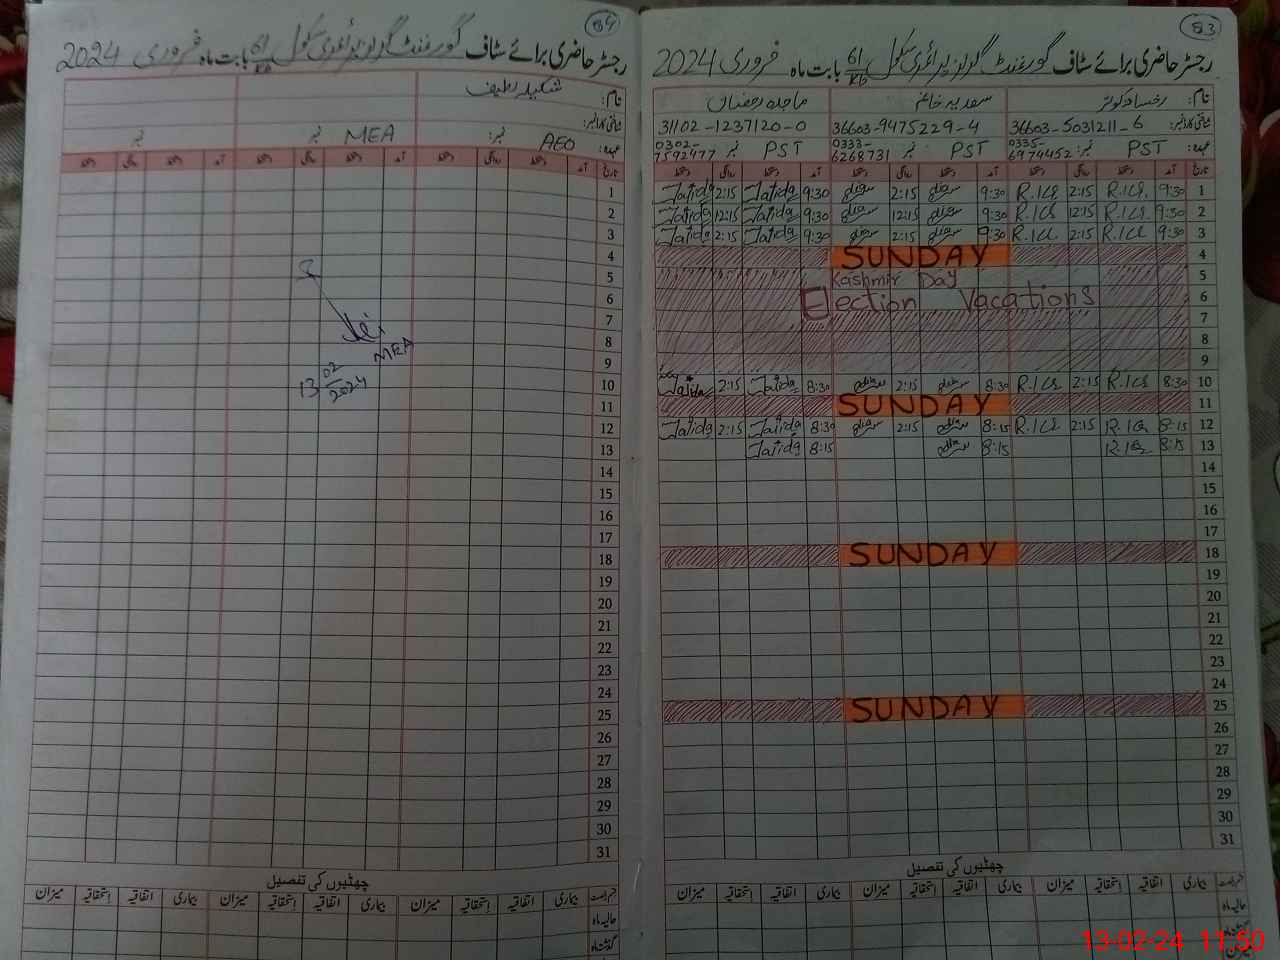 83
رجسٹر حاضری برائے سٹاف گورنمنٹ گرلز پرائمری سکول 61/KB بابت ماہ فروری 2024
نام: رخسانہ کوثر سعدیہ خانم ماجدہ رمضان
شناختی کارڈ نمبر: 36603-5031211-6 36603-9475229-4 31102-1237120-0
عہدہ: PST نمبر 0335-6974452 PST نمبر 0333-6268731 PST نمبر 0302-7592477
تاریخ آمد دستخط روانگی دستخط آمد دستخط روانگی دستخط آمد دستخط روانگی دستخط
1 9:30 R.K 2:15 R.K 9:30 سعدیہ 2:15 سعدیہ 9:30 Jajida 2:15 Jajida
2 9:30 R.K 12:15 R.K 9:30 سعدیہ 12:15 سعدیہ 9:30 Jajida 12:15 Jajida
3 9:30 R.K 2:15 R.K 9:30 سعدیہ 2:15 سعدیہ 9:30 Jajida 2:15 Jajida
4 SUNDAY
5 Kashmir Day
6 Election Vacations
7
8
9
10 8:30 R.K 2:15 R.K 8:30 سعدیہ 2:15 سعدیہ 8:30 Jajida 2:15 Jajida
11 SUNDAY
12 8:15 R.K 2:15 R.K 8:15 سعدیہ 2:15 سعدیہ 8:30 Jajida 2:15 Jajida
13 8:15 R.K 8:15 سعدیہ 8:15 Jajida
14
15
16
17
18 SUNDAY
19
20
21
22
23
24
25 SUNDAY
26
27
28
29
30
31
چھٹیوں کی تفصیل
بیماری اتفاقیہ استحقاقیہ میزان بیماری اتفاقیہ استحقاقیہ میزان بیماری اتفاقیہ استحقاقیہ میزان
حالیہ ماہ
گذشتہ ماہ
میزان
84
رجسٹر حاضری برائے سٹاف گورنمنٹ گرلز پرائمری سکول 61/KB بابت ماہ فروری 2024
نام: شکیلہ لطیف
شناختی کارڈ نمبر:
عہدہ: AEO نمبر: MEA نمبر نمبر
تاریخ آمد دستخط روانگی دستخط آمد دستخط روانگی دستخط آمد دستخط روانگی دستخط
1
2
3
4
5
6
7
8 MEA
9
10 13/02/2024
11
12
13
14
15
16
17
18
19
20
21
22
23
24
25
26
27
28
29
30
31
چھٹیوں کی تفصیل
بیماری اتفاقیہ استحقاقیہ میزان بیماری اتفاقیہ استحقاقیہ میزان بیماری اتفاقیہ استحقاقیہ میزان
حالیہ ماہ
گذشتہ ماہ
13-02-24 11:50